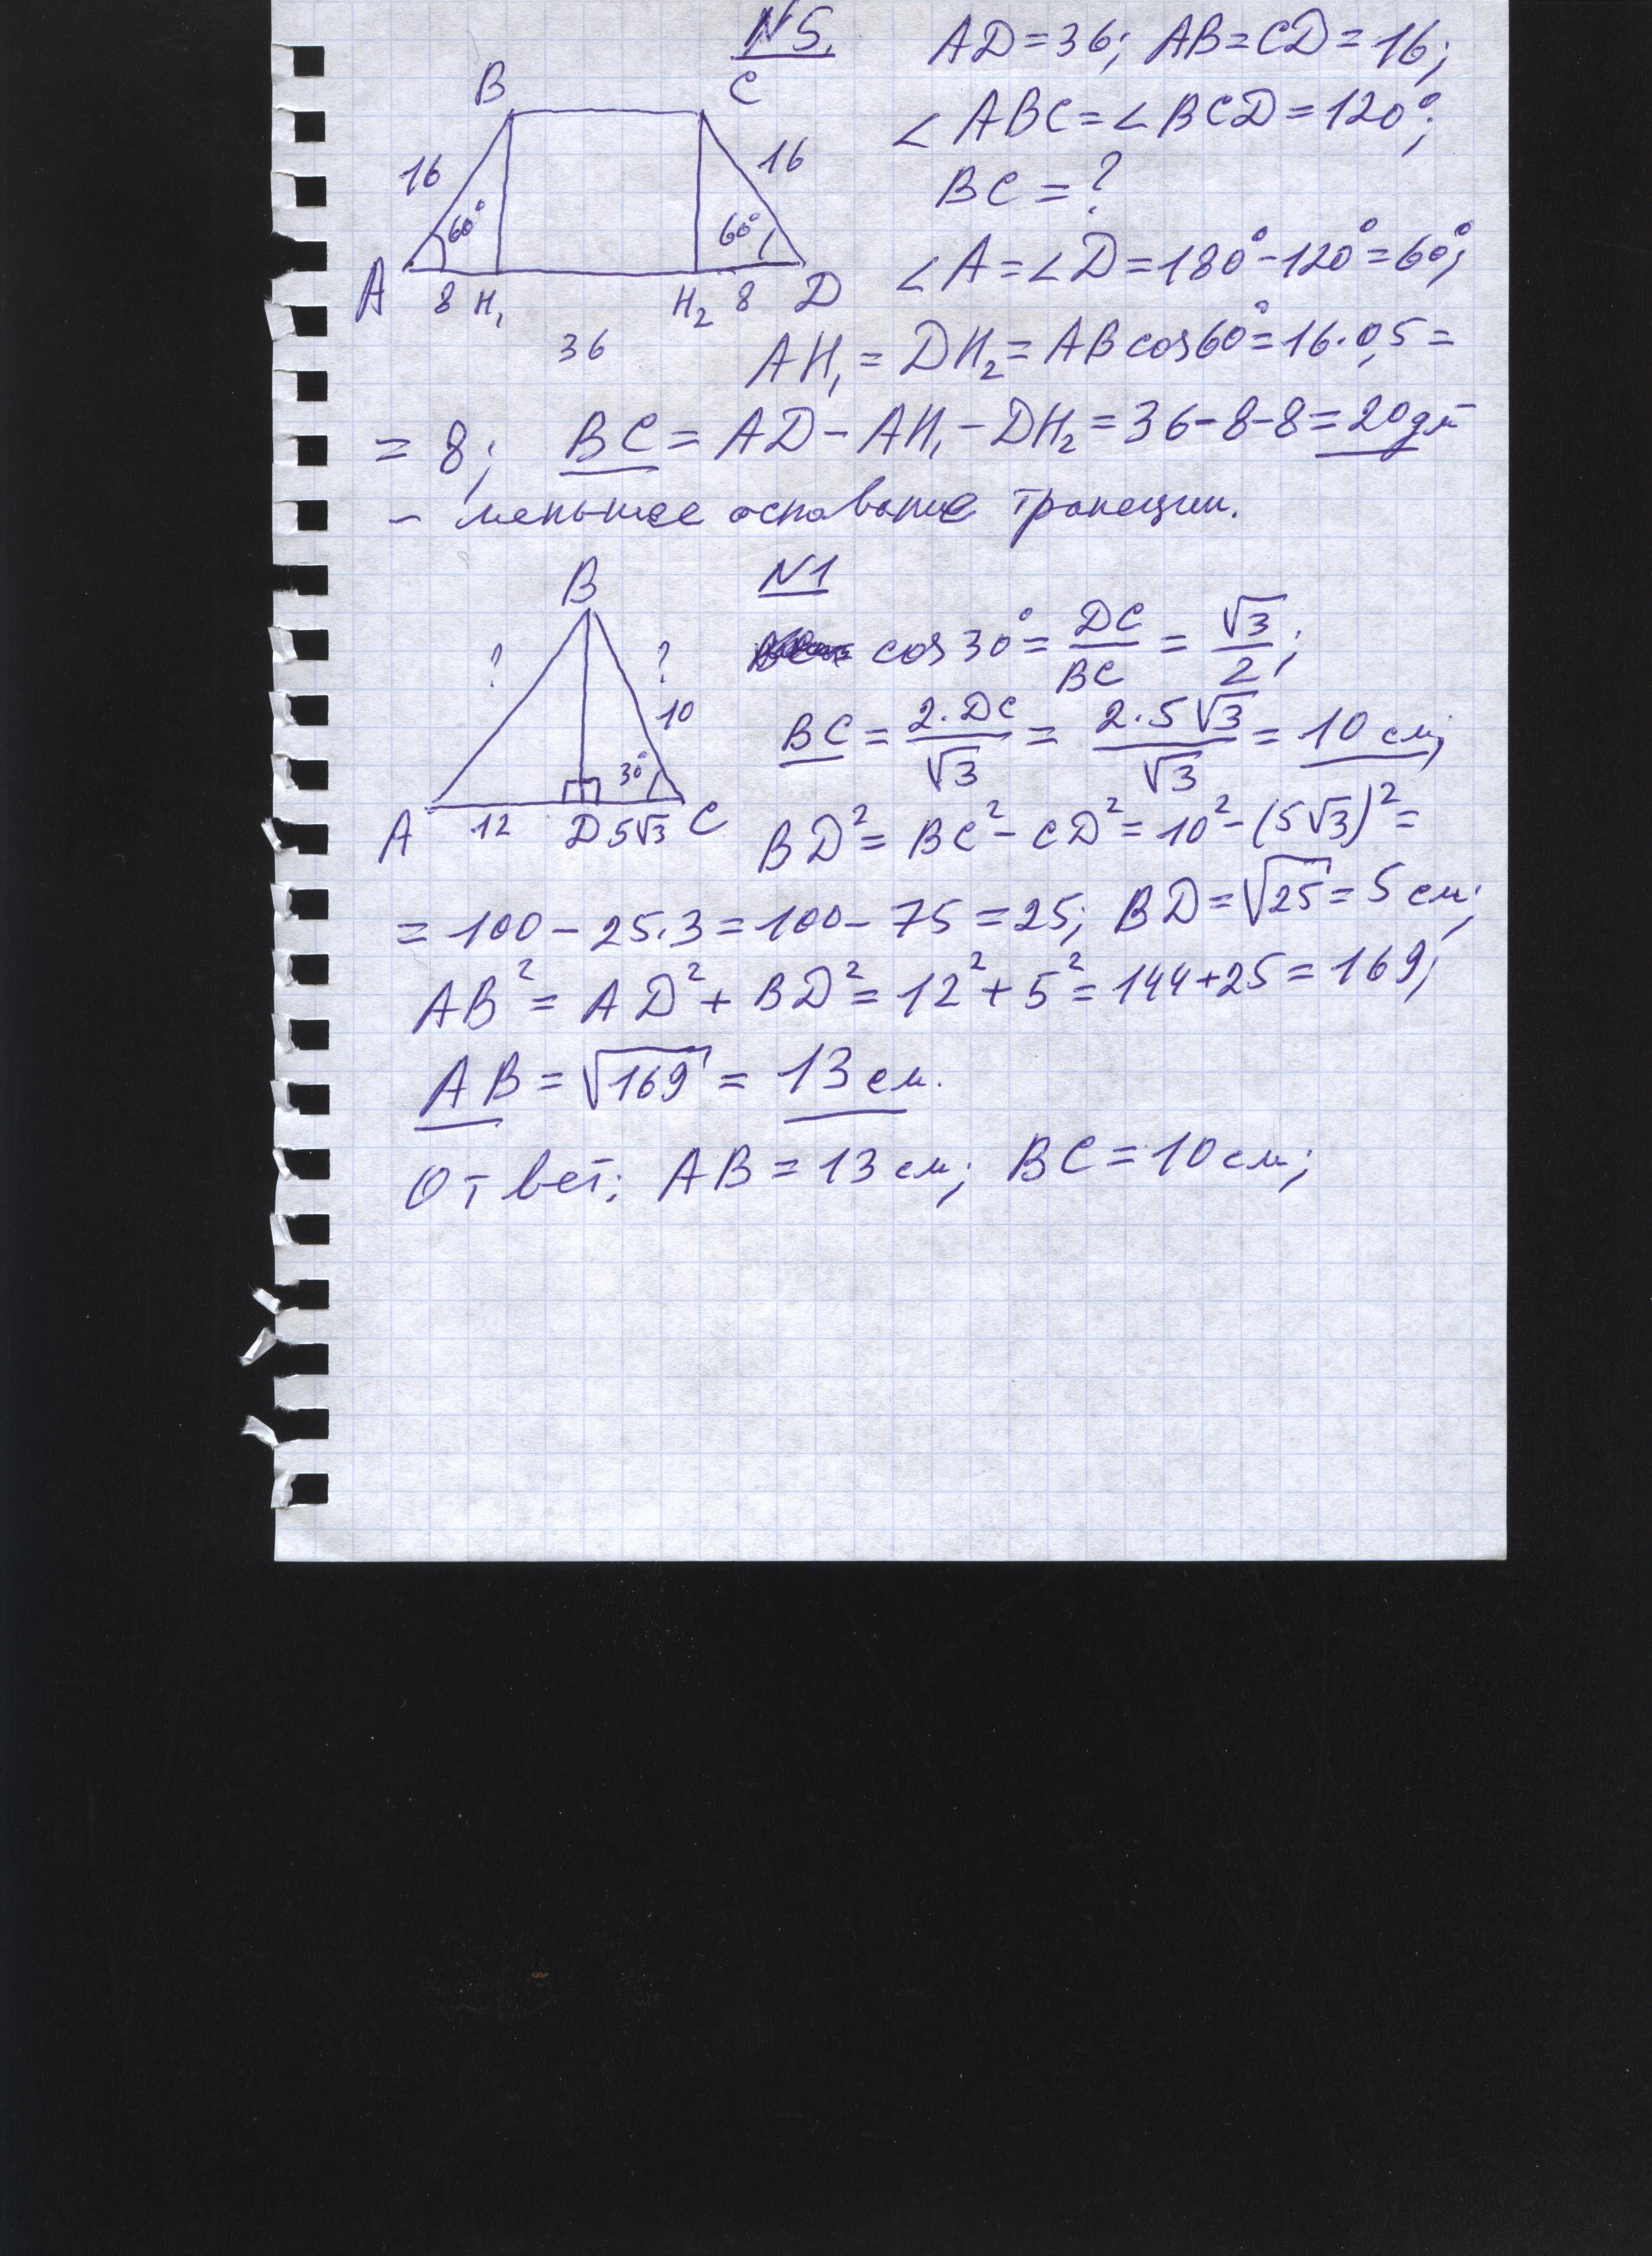 N5.
AD=36; AB=CD=16;
∠ABC=∠BCD=120°;
BC=?
∠A=∠D=180°-120°=60°;
B C
16 16
60° 60°
A 8 H₁ H₂ 8 D
36
AH₁=DH₂=ABcos60°=16·0,5=
=8; BC=AD-AH₁-DH₂=36-8-8=20дм
- меньшее основание трапеции.
N1
B
? ?
10
30°
A 12 D 5√3 C
cos30°=DC/BC=√3/2;
BC=2·DC/√3=2·5√3/√3=10 см;
BD²=BC²-CD²=10²-(5√3)²=
=100-25·3=100-75=25; BD=√25=5 см;
AB²=AD²+BD²=12²+5²=144+25=169;
AB=√169=13 см.
Ответ: AB=13 см; BC=10 см;